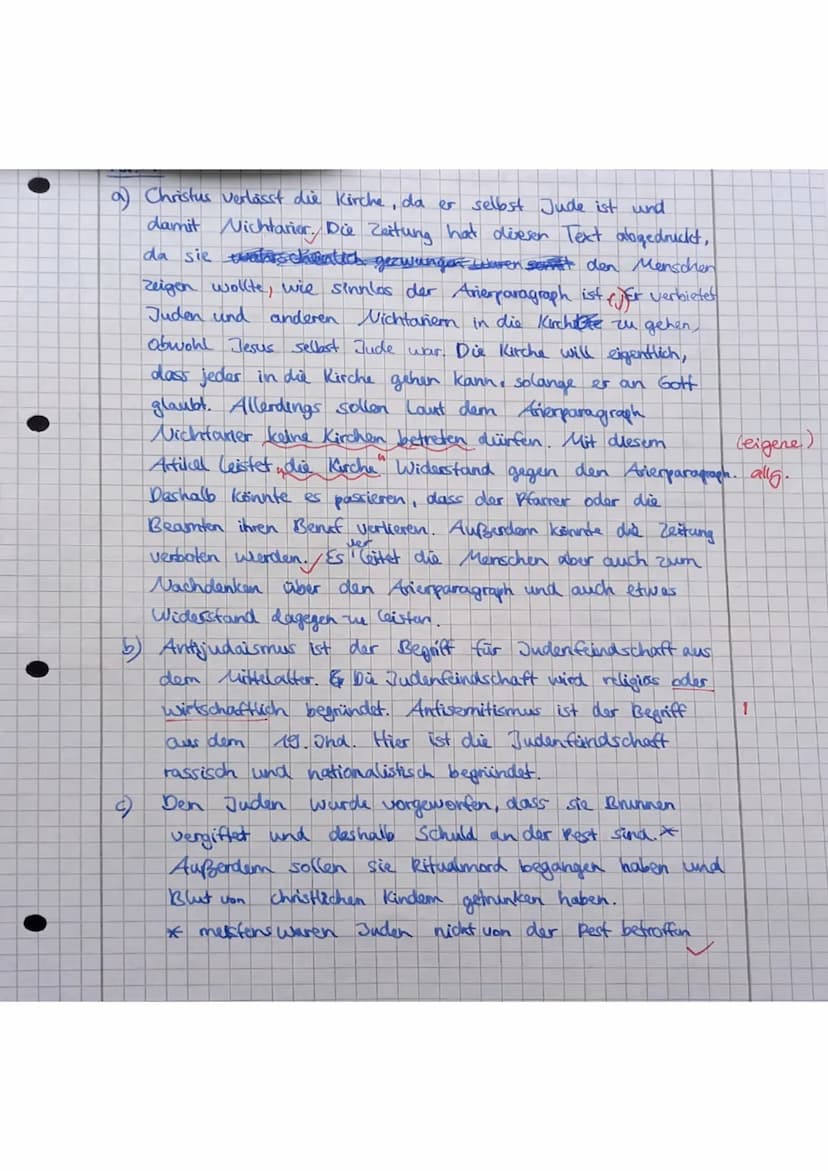 a) Christus verlässt die Kirche, da er selbst Jude ist und
damit Nichtarier. Die Zeitung hat diesen Text abgedruckt,
da sie den Menschen
zeigen wollte, wie sinnlos der Arierparagraph ist (,) Er verbietet
Juden und anderen Nichtariern in die Kirche zu gehen,
obwohl Jesus selbst Jude war. Die Kirche will eigentlich,
dass jeder in die Kirche gehen kann, solange er an Gott
glaubt. Allerdings sollen laut dem Arierparagraph
Nichtarier keine Kirchen betreten dürfen. Mit diesem (eigene)
Artikel leistet "die Kirche" Widerstand gegen den Arierparagraph. allg.
Deshalb könnte es passieren, dass der Pfarrer oder die
Beamten ihren Beruf verlieren. Außerdem könnte die Zeitung
verboten werden. Es verleitet die Menschen aber auch zum
Nachdenken über den Arierparagraph und auch etwas
Widerstand dagegen zu leisten.
b) Antijudaismus ist der Begriff für Judenfeindschaft aus
dem Mittelalter. Die Judenfeindschaft wird religiös oder
wirtschaftlich begründet. Antisemitismus ist der Begriff
aus dem 19. Jhd. Hier ist die Judenfeindschaft
rassisch und nationalistisch begründet.
c) Den Juden wurde vorgeworfen, dass sie Brunnen
vergiftet und deshalb Schuld an der Pest sind.*
Außerdem sollen sie Ritualmord begangen haben und
Blut von christlichen Kindern getrunken haben.
* meistens waren Juden nicht von der Pest betroffen